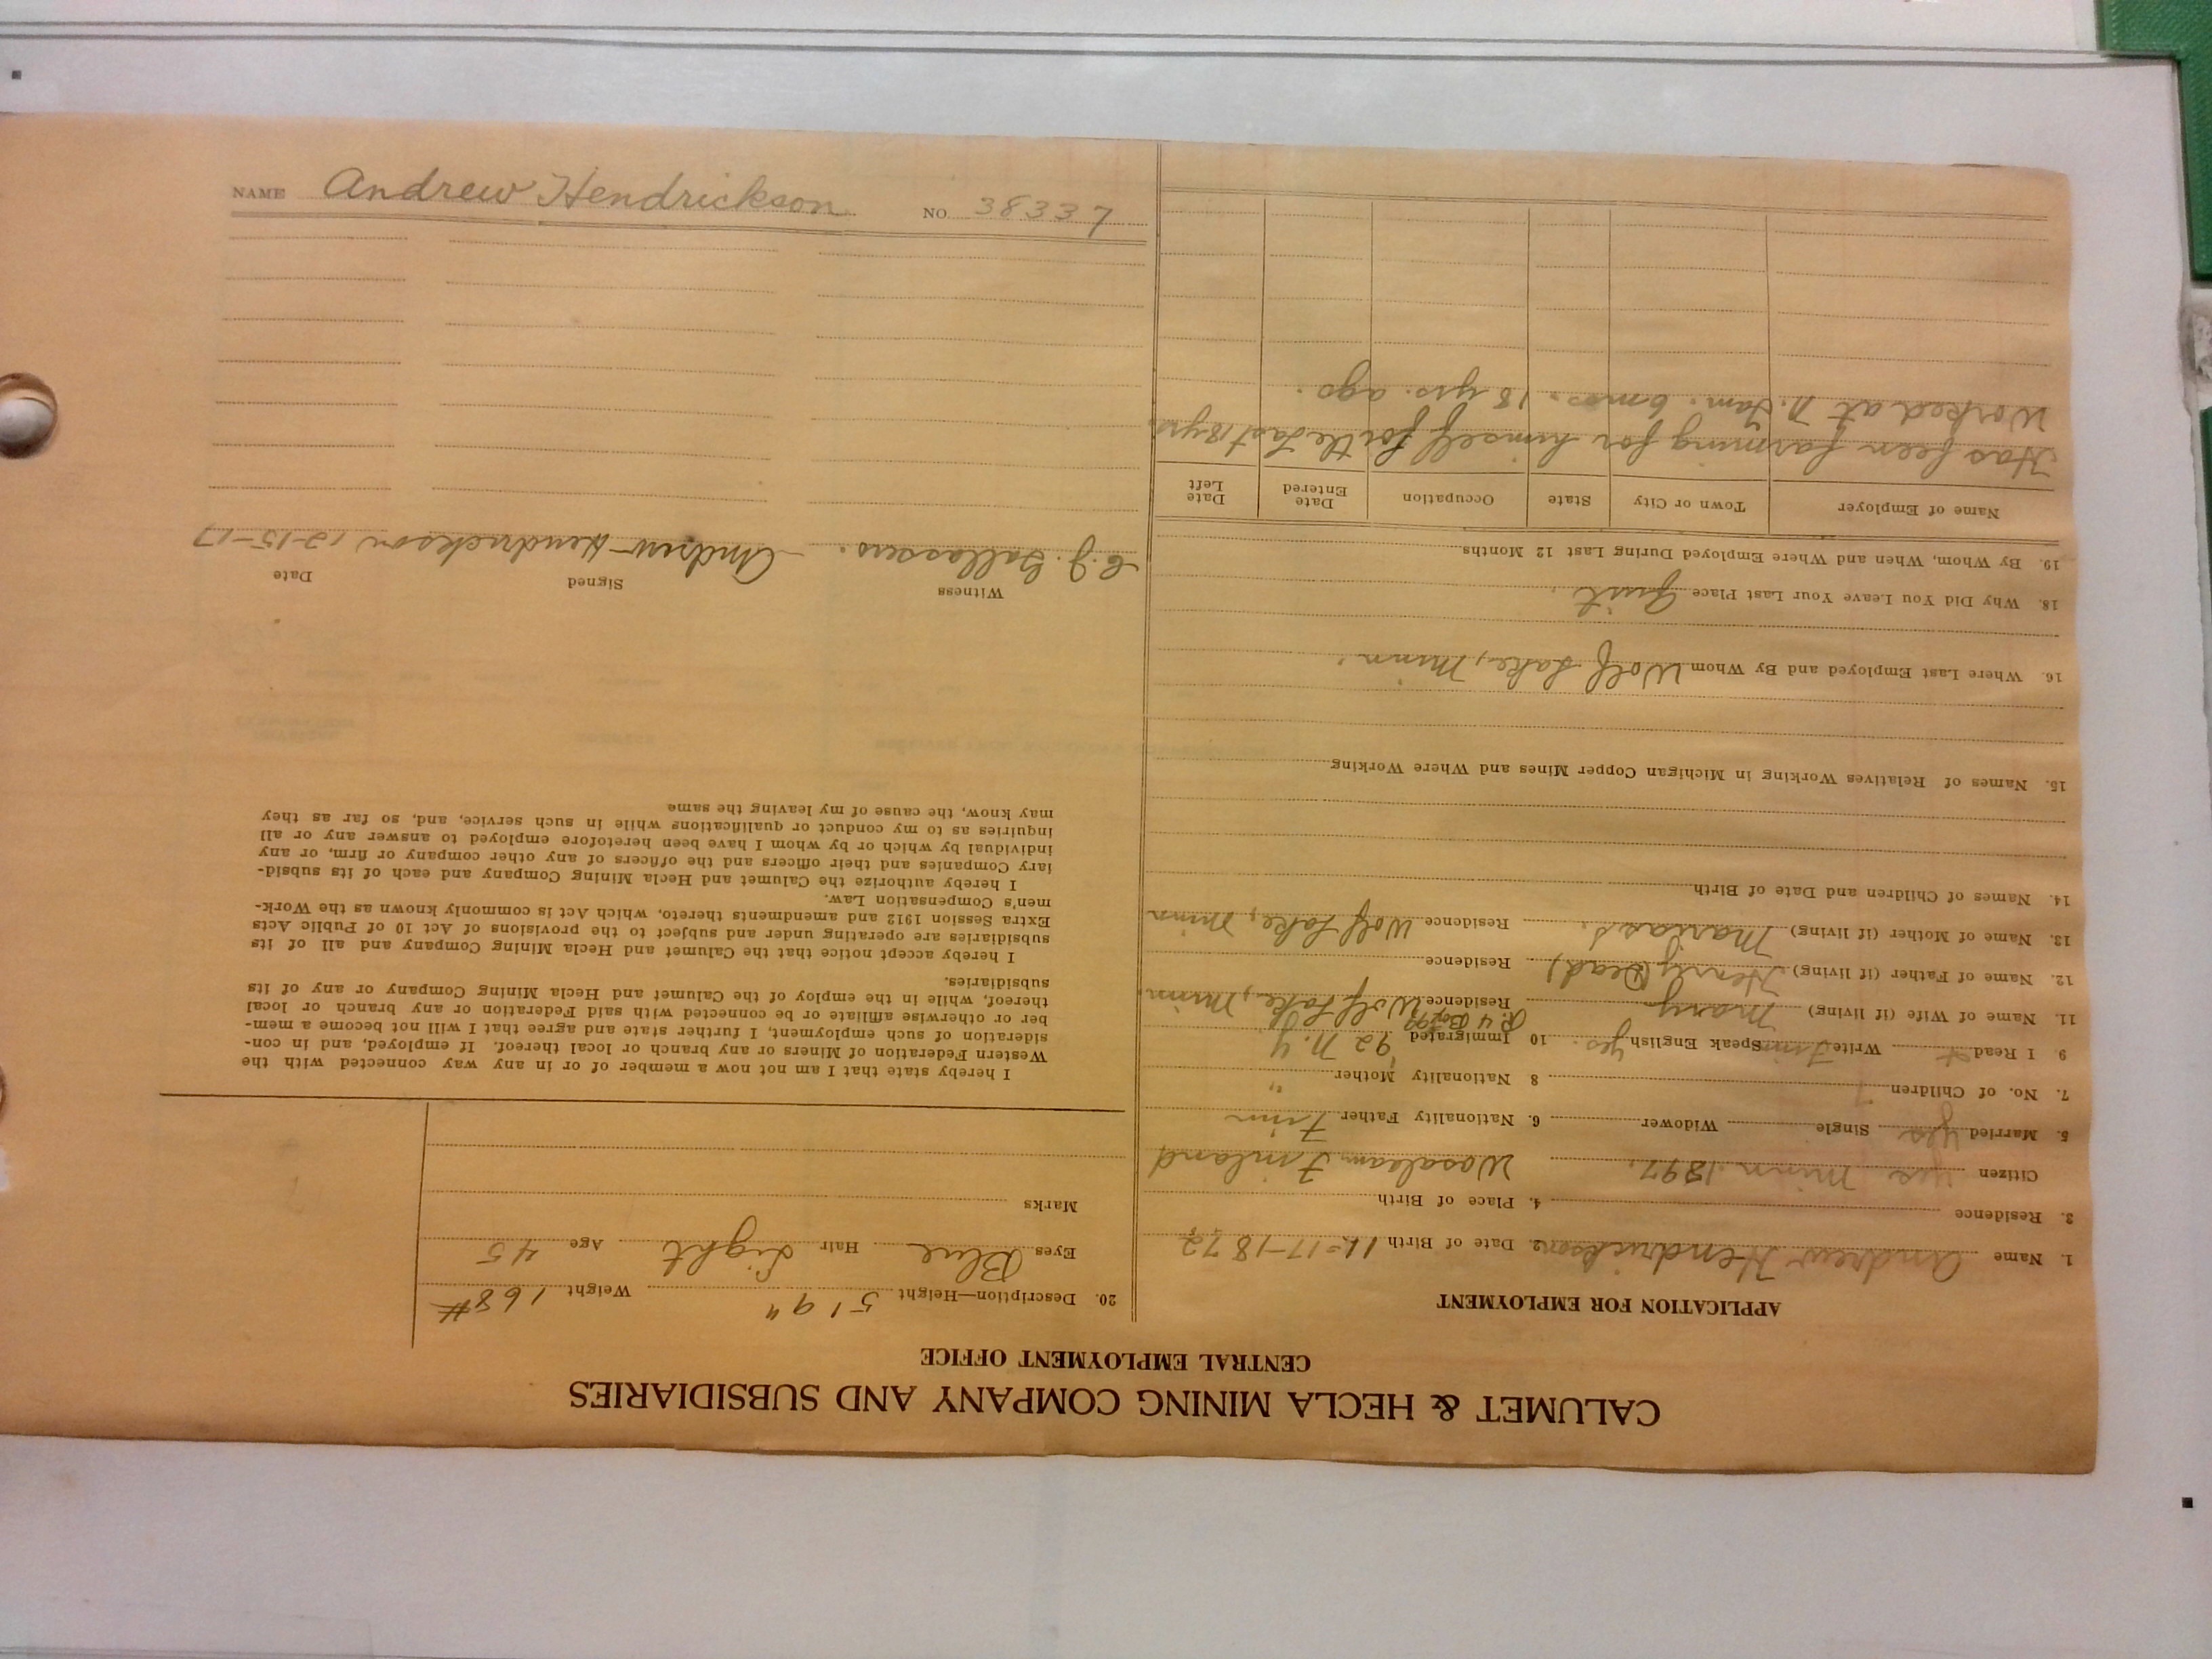 CALUMET & HECLA MINING COMPANY AND SUBSIDIARIES
CENTRAL EMPLOYMENT OFFICE
APPLICATION FOR EMPLOYMENT
1. Name Andrew Hendrickson 2. Date of Birth 11-17-1872
3. Residence 4. Place of Birth
Citizen yes Minn. 1897. Finland
5. Married yes Single Widower 6. Nationality Father Finn
7. No. of Children 7 8 Nationality Mother "
9 I Read + Write Finn Speak English yes. 10 Immigrated '92 N.Y
R. 4 Box 99
11. Name of Wife (if living) Mary Residence Wolf Lake, Minn.
12. Name of Father (if living) Henry (Dead) Residence
13. Name of Mother (if living) Residence Wolf Lake, Minn
14. Names of Children and Date of Birth
15. Names of Relatives Working in Michigan Copper Mines and Where Working
16. Where Last Employed and By Whom Wolf Lake, Minn.
18. Why Did You Leave Your Last Place Quit.
19. By Whom, When and Where Employed During Last 12 Months
Name of Employer Town or City State Occupation Date Entered Date Left
Has been farming for himself for the Last 18 yrs.
Worked at N. Tam. 6 mos. 18 yrs. ago.
20. Description—Height 5' 9" Weight 168#
Eyes Blue Hair Light Age 45
Marks
I hereby state that I am not now a member of or in any way connected with the
Western Federation of Miners or any branch or local thereof. If employed, and in con-
sideration of such employment, I further state and agree that I will not become a mem-
ber or otherwise affiliate or be connected with said Federation or any branch or local
thereof, while in the employ of the Calumet and Hecla Mining Company or any of its
subsidiaries.
I hereby accept notice that the Calumet and Hecla Mining Company and all of its
subsidiaries are operating under and subject to the provisions of Act 10 of Public Acts
Extra Session 1912 and amendments thereto, which Act is commonly known as the Work-
men's Compensation Law.
I hereby authorize the Calumet and Hecla Mining Company and each of its subsid-
iary Companies and their officers and the officers of any other company or firm, or any
individual by which or by whom I have been heretofore employed to answer any or all
inquiries as to my conduct or qualifications while in such service, and, so far as they
may know, the cause of my leaving the same
Witness Signed Date
C. J. Andrew Hendrickson 12-15-17
NAME Andrew Hendrickson NO 38337